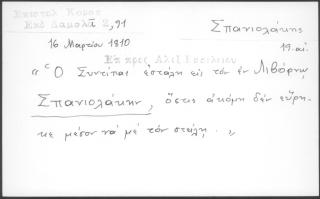 Επιστολ Κοραη
Εκδ Δαμαλᾶ 2, 91
Σπανιολάκης
16 Μαρτίου 1810
19. αἰ.
Ἐπ πρὸς Ἀλεξ Βασιλειου
"Ὁ Συντίπας ἐστάλη εἰς τὸν ἐν Λιβόρνῳ
Σπανιολάκην, ὅστις ἀκόμη δὲν εὕρη-
κε μέσον νὰ μὲ τὸν στείλῃ. "